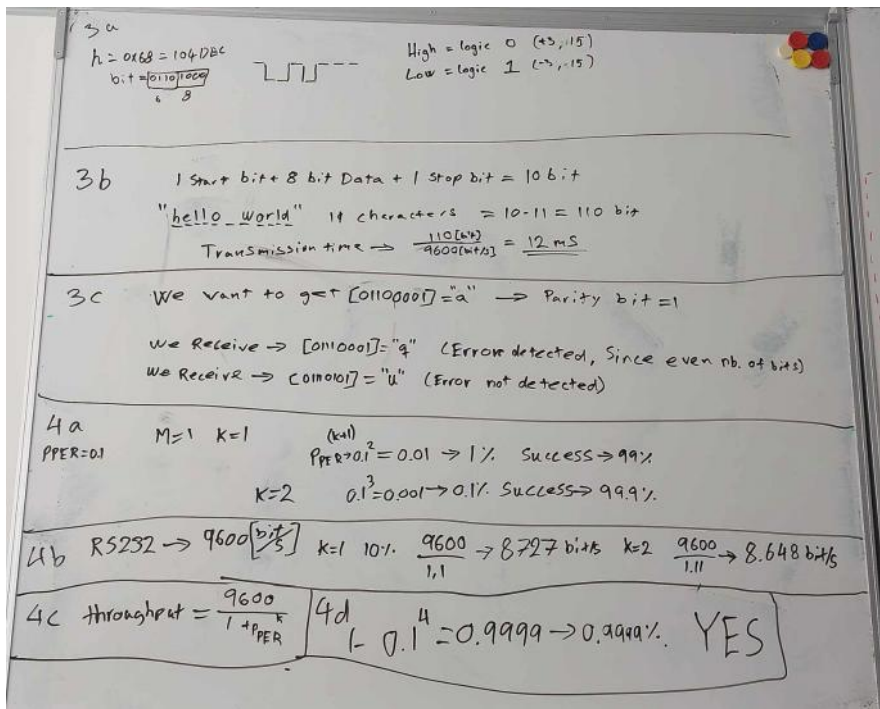 3a
h = 0x68 = 104 DEC
bit = 0110 1000
6 8
High = logic 0 (+3, 15)
Low = logic 1 (-3, -15)
3b
1 Start bit + 8 bit Data + 1 Stop bit = 10 bit
"hello_world" 11 characters = 10-11 = 110 bit
Transmission time → 110[bit] / 9600[bit/s] = 12 ms
3c
We want to get [01100001] = "a" → Parity bit = 1
we Receive → [01110001] = "q" (Error detected, Since even nb. of bits)
We Receive → [01110101] = "u" (Error not detected)
4a
PPER=0.1
M=1 K=1
(k+1)
PPER→0.1² = 0.01 → 1% Success → 99%
K=2 0.1³=0.001→0.1% Success→ 99.9%
4b RS232 → 9600 [bit/s] K=1 10% 9600/1,1 → 8727 bit/s K=2 9600/1.11 → 8.648 bit/s
4c throughput = 9600 / 1 + PPER^k
4d
1- 0.1⁴ = 0.9999 → 0.9999% YES